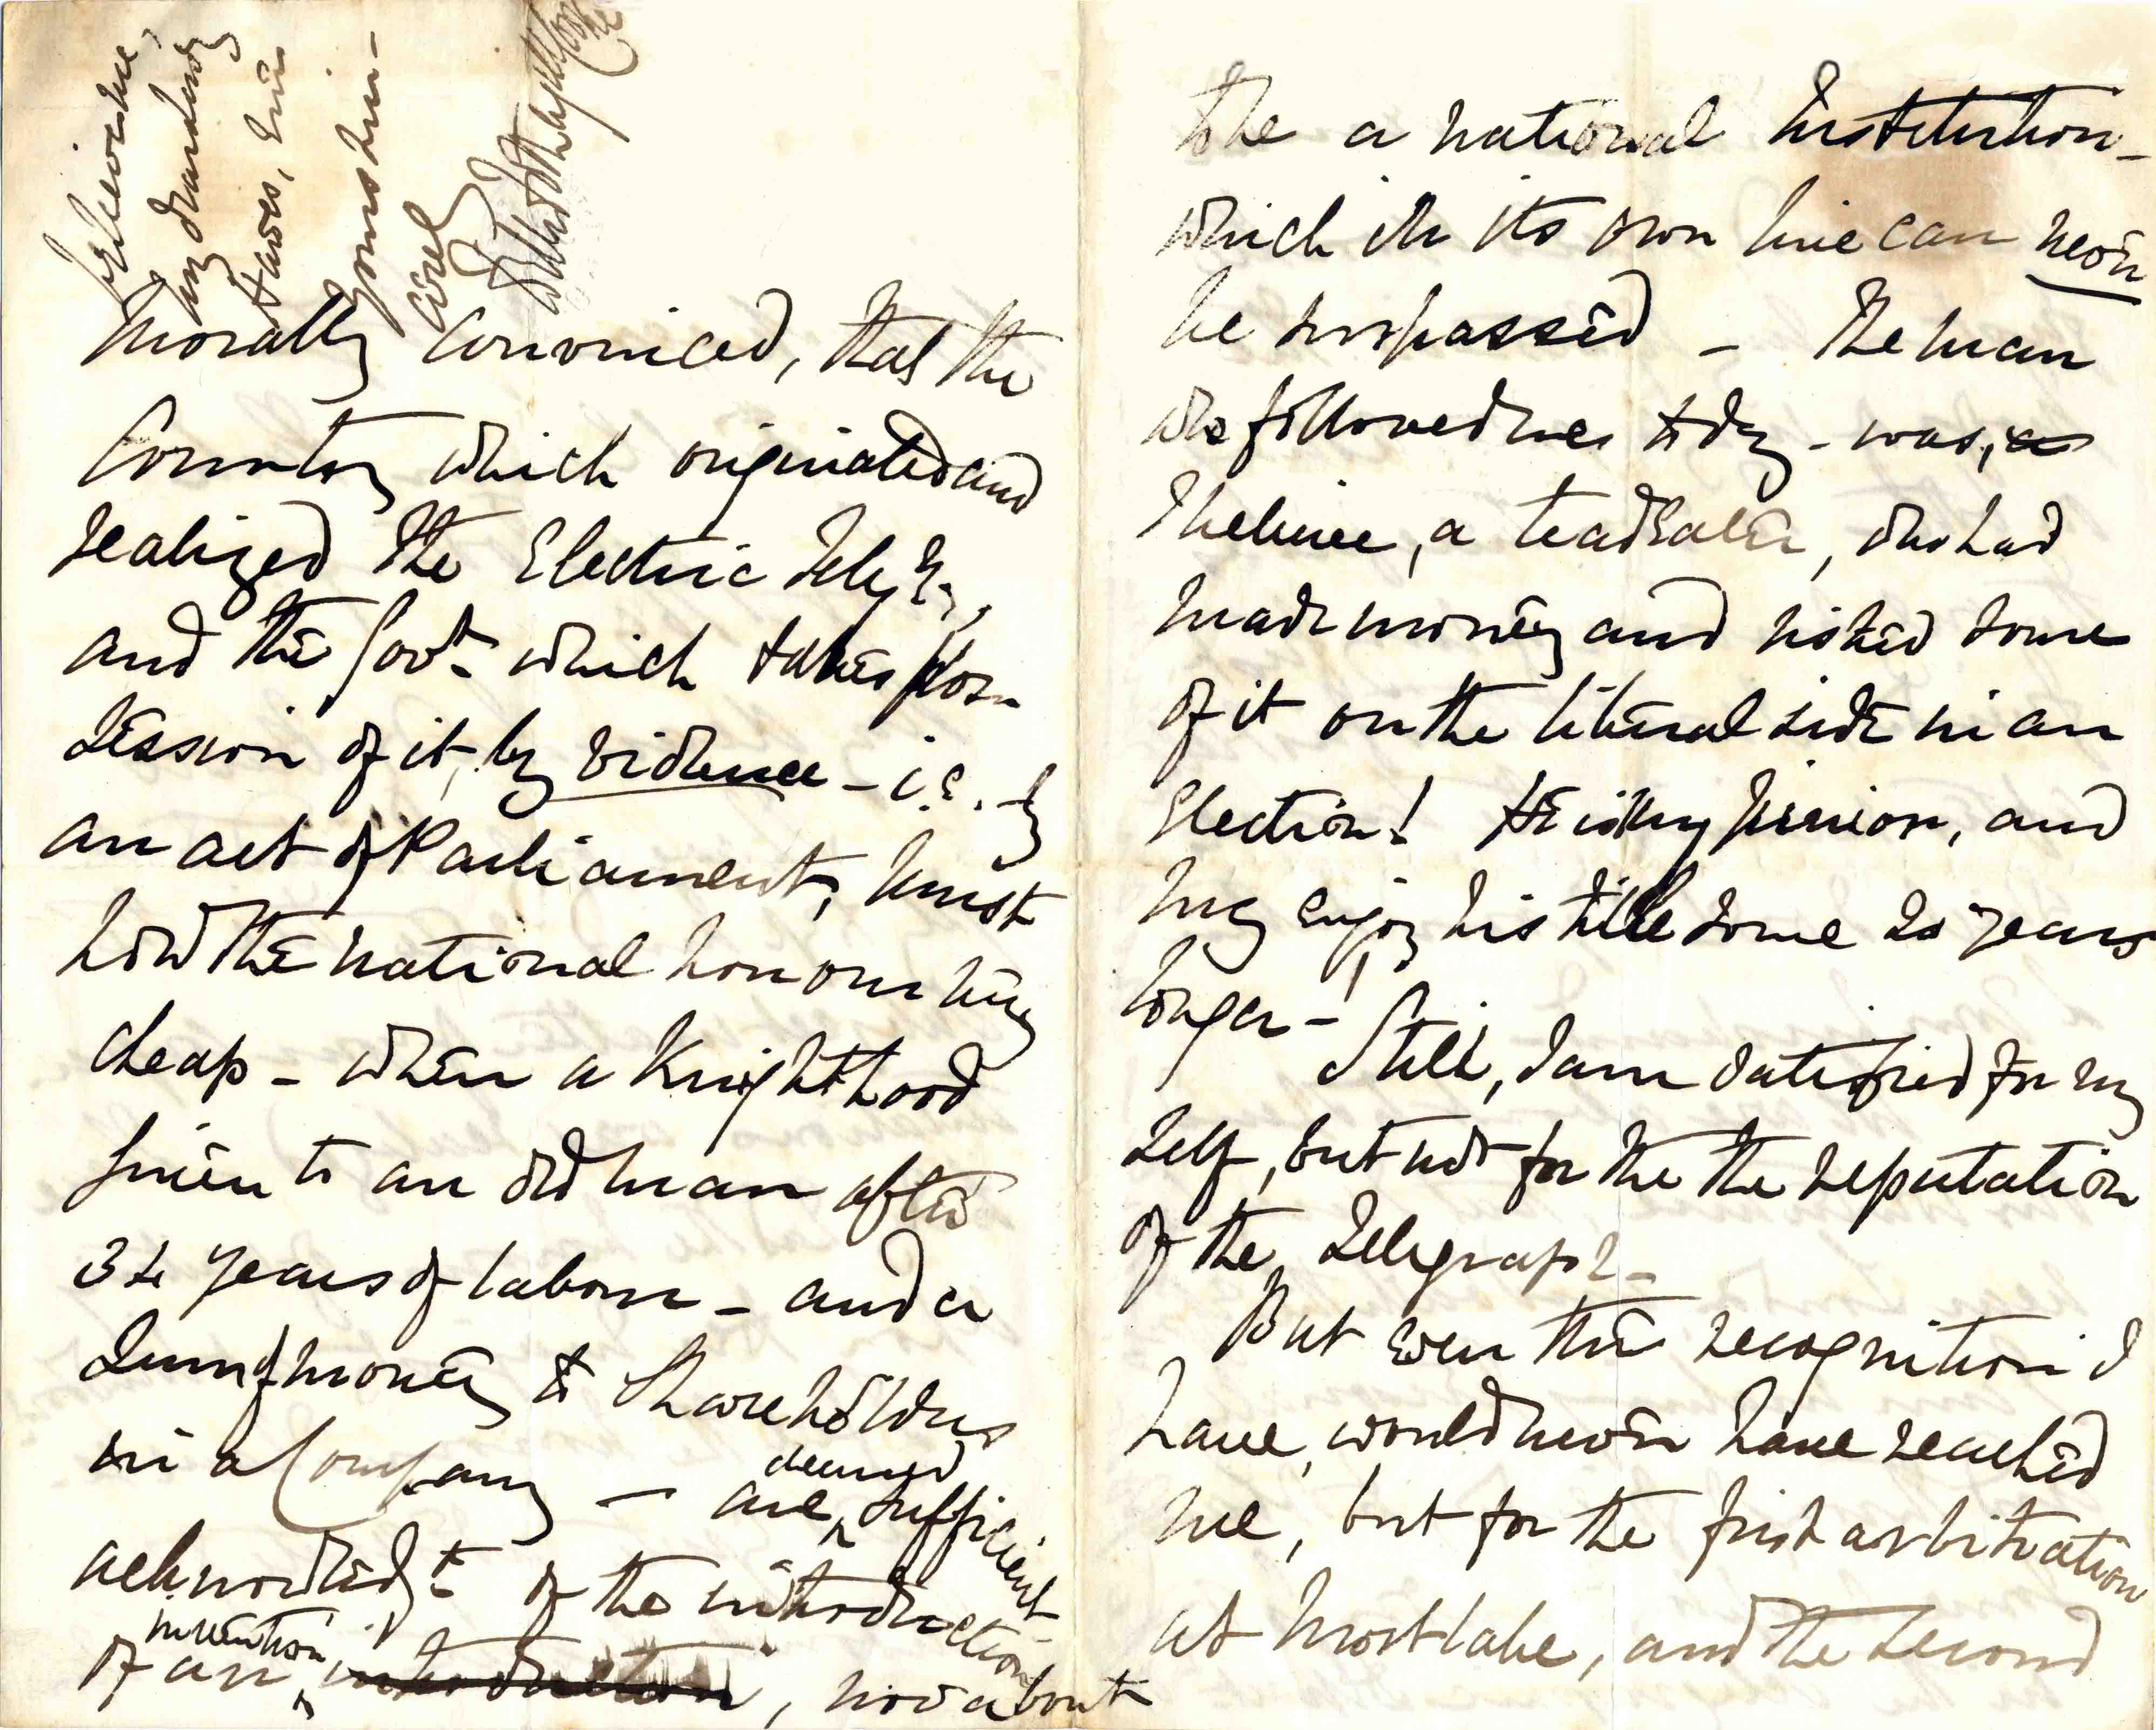 morally convinced, that the
Country which originated and
realized the Electric Telegh,
and the Govt which takes pos-
session of it, by violence - i.e. by
an act of Parliament, must
hold the national honour very
cheap - when a Knighthood
given to an old man after
34 years of labour - and a
Sum of money to Shareholders
in a Company - are deemed sufficient
acknowledgt of the introduction
of an invention introduction, now about
to be a national Institution -
which in its own line can never
be surpassed - The man
who followed me to day - was, as
I believe, a tea dealer, who had
made money and risked some
of it on the liberal side in an
Election! He is my junior, and
may enjoy his title some 20 years
longer - !
Still, I am satisfied for my
self, but not for the the reputation
of the Telegraph -
But even the recognition I
have, would never have reached
me, but for the first arbitration
at Mortlake, and the second
believe me,
my dear
Hawes, Ever
Yours sin-
cerely